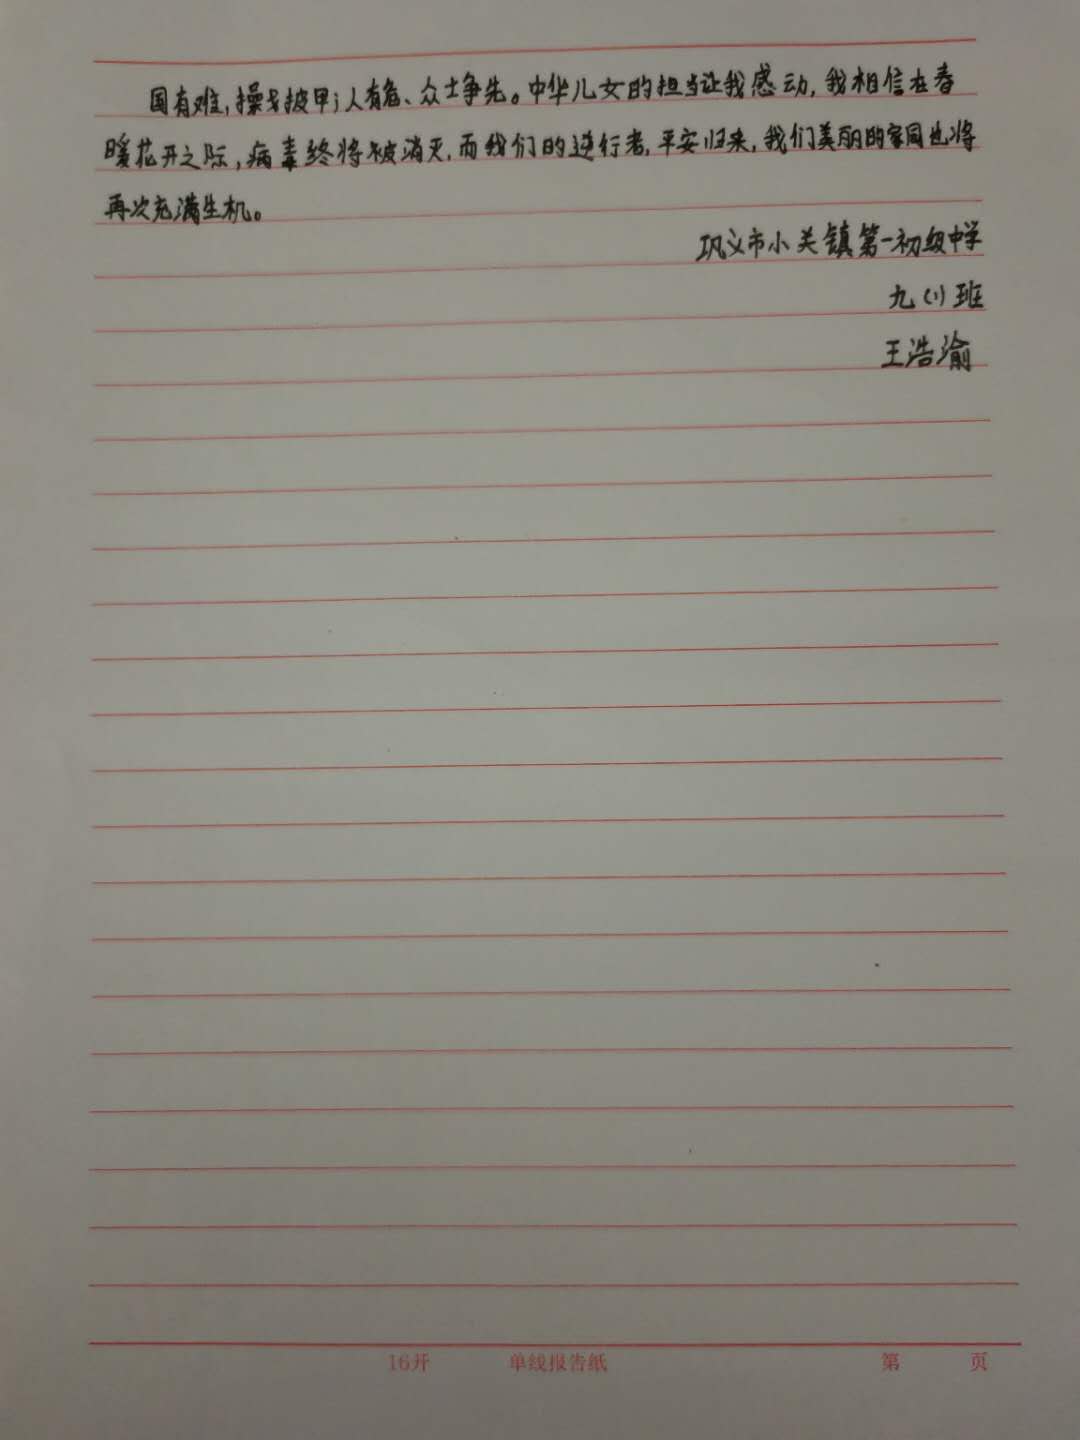 国有难,操戈披甲;人有危、众士争先。中华儿女的担当让我感动,我相信在春
暖花开之际,病毒终将被消灭,而我们的逆行者,平安归来,我们美丽的家园也将
再次充满生机。
巩义市小关镇第一初级中学
九(1)班
王浩渝
16开 单线报告纸 第 页